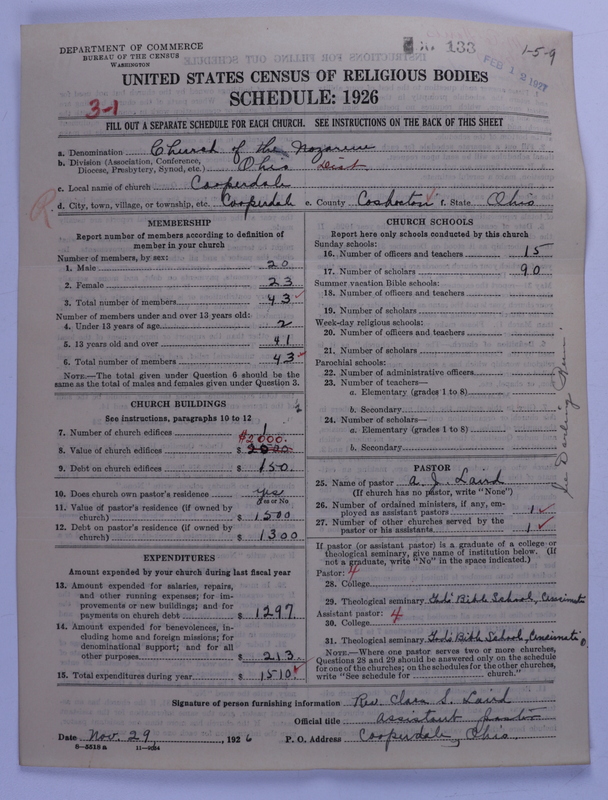 DEPARTMENT OF COMMERCE
BUREAU OF THE CENSUS
WASHINGTON
133
FEB 12 1927
1-5-9
UNITED STATES CENSUS OF RELIGIOUS BODIES
SCHEDULE: 1926
3-1
FILL OUT A SEPARATE SCHEDULE FOR EACH CHURCH. SEE INSTRUCTIONS ON THE BACK OF THIS SHEET
a. Denomination Church of the Nazarene
b. Division (Association, Conference, Diocese, Presbytery, Synod, etc.) Ohio Dist
c. Local name of church Cooperdale
d. City, town, village, or township, etc. Cooperdale e. County Coshocton f. State Ohio
R.
MEMBERSHIP
Report number of members according to definition of
member in your church
Number of members, by sex:
1. Male 20
2. Female 23
3. Total number of members 43
Number of members under and over 13 years old:
4. Under 13 years of age 2
5. 13 years old and over 41
6. Total number of members 43
NOTE.—The total given under Question 6 should be
same as the total of males and females given under Question 3.
CHURCH BUILDINGS
See instructions, paragraphs 10 to 12
7. Number of church edifices 1
$2000.
8. Value of church edifices $ 2000
9. Debt on church edifices $ 150.
10. Does church own pastor's residence yes
Yes or No
11. Value of pastor's residence (if owned by
church) $ 1500
12. Debt on pastor's residence (if owned by
church) $ 1300
EXPENDITURES
Amount expended by your church during last fiscal year
13. Amount expended for salaries, repairs,
and other running expenses; for im-
provements or new buildings; and for
payments on church debt $ 1297
14. Amount expended for benevolences, in-
cluding home and foreign missions; for
denominational support; and for all
other purposes $ 213
15. Total expenditures during year $ 1510
CHURCH SCHOOLS
Report here only schools conducted by this church
Sunday schools:
16. Number of officers and teachers 15
17. Number of scholars 90
Summer vacation Bible schools:
18. Number of officers and teachers
19. Number of scholars
Week-day religious schools:
20. Number of officers and teachers
21. Number of scholars
Parochial schools:
22. Number of administrative officers
23. Number of teachers—
a. Elementary (grades 1 to 8)
b. Secondary
24. Number of scholars—
a. Elementary (grades 1 to 8)
b. Secondary
PASTOR
25. Name of pastor A. J. Laird
(If church has no pastor, write "None")
26. Number of ordained ministers, if any, em-
ployed as assistant pastors 1
27. Number of other churches served by the
pastor or his assistants 1
If pastor (or assistant pastor) is a graduate of a college or
theological seminary, give name of institution below. (If
not a graduate, write "No" in the space indicated.)
Pastor: 4
28. College
29. Theological seminary God's Bible School, Cincinnati
Assistant pastor: 4
30. College
31. Theological seminary God's Bible School, Cincinnati O.
NOTE.—Where one pastor serves two or more churches,
Questions 28 and 29 should be answered only on the schedule
for one of the churches; on the schedules for the other churches,
write "See schedule for church."
Signature of person furnishing information Rev. Clara S. Laird
Official title assistant pastor
Date Nov. 29, 1926 P. O. Address Cooperdale, Ohio
8-5518a 11-9024